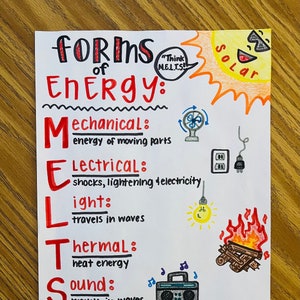 forms
of
"Think
M.E.L.T.S!"
EnErGY:
SOLAR
Mechanical:
energy of moving parts
Electrical:
shocks, lightening & electricity
Light:
travels in waves
Thermal:
heat energy
Sound: